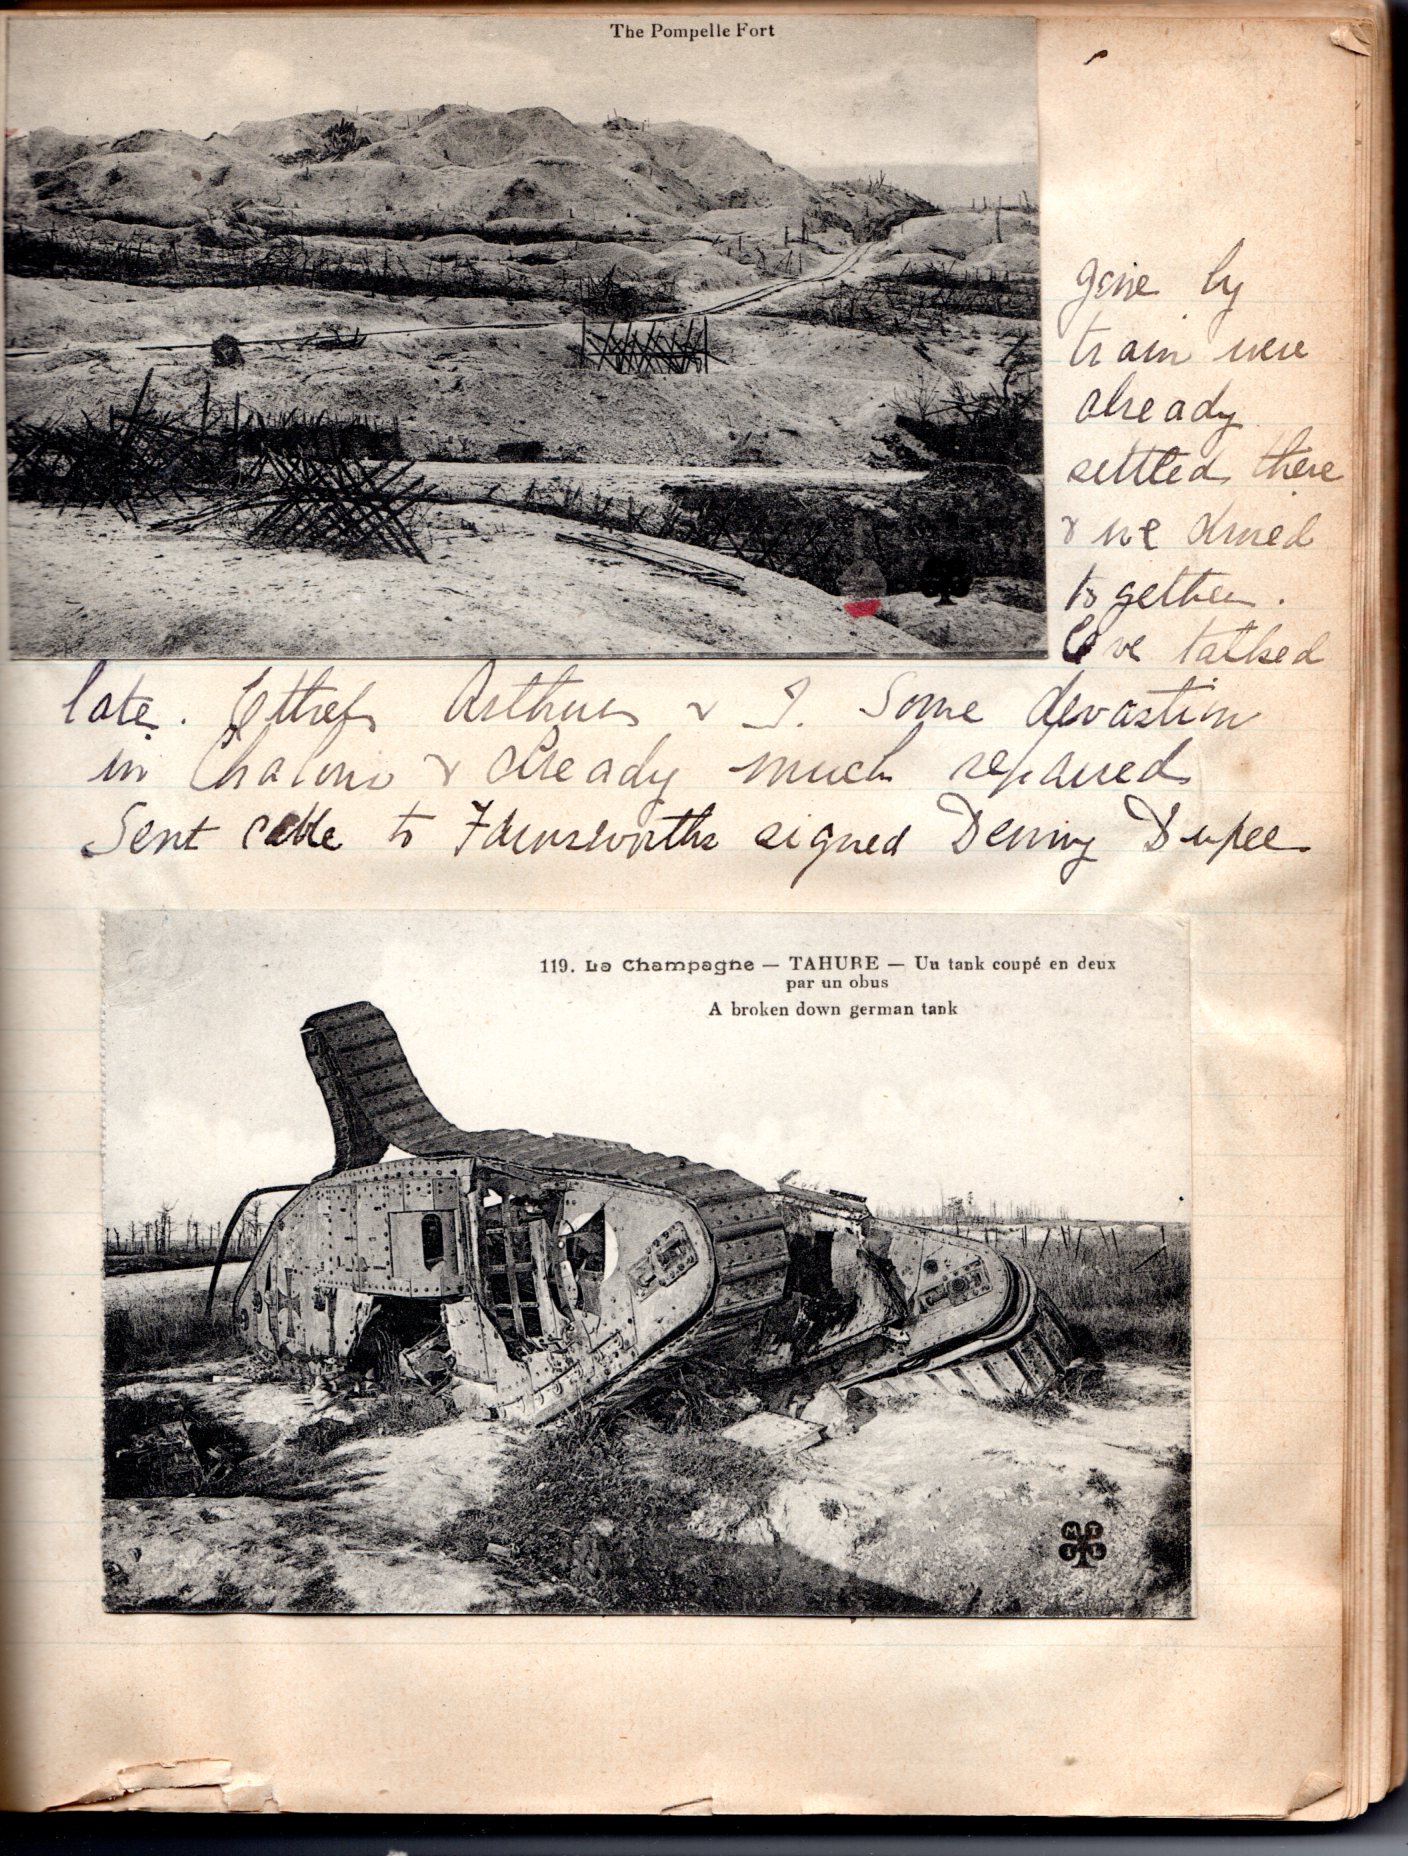 The Pompelle Fort
gone by
train were
already
settled there
& we dined
together.
We talked
late. Arthur & I. Some devastion
in Chalons & already much repaired
Sent cable to Farnsworths signed Denny Dupee
119. La Champagne — TAHURE — Un tank coupé en deux
par un obus
A broken down german tank
M T
I L